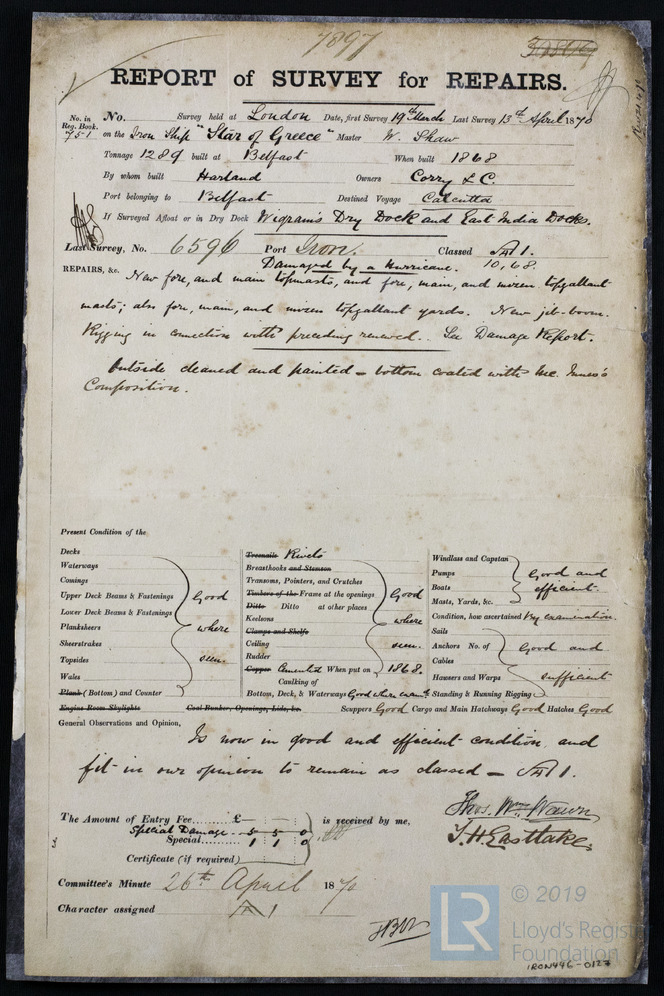 7897
REPORT of SURVEY for REPAIRS.
No. in Reg. Book. 751
No. Survey held at London Date, first Survey 19th March Last Survey 13th April 1870
on the Iron Ship "Star of Greece" Master W. Shaw
Tonnage 1289 built at Belfast When built 1868
By whom built Harland Owners Corry & C.
Port belonging to Belfast Destined Voyage Calcutta
If Surveyed Afloat or in Dry Dock Wigram's Dry Dock and East India Docks.
Last Survey, No. 6596 Port Iron. Classed A1.
Damaged by a Hurricane. 10,68.
REPAIRS, &c. New fore, and main topmasts, and fore, main, and mizen topgallant
masts; also fore, main, and mizen topgallant yards. New jib-boom.
Rigging in connection with preceding renewed.. See Damage Report.
Outside cleaned and painted - bottom coated with Mc. Innes's
Composition.
Present Condition of the
Decks
Waterways
Comings
Upper Deck Beams & Fastenings
Lower Deck Beams & Fastenings
Planksheers
Sheerstrakes
Topsides
Wales
Plank (Bottom) and Counter
Good
where
seen.
Engine Room Skylights
Coal Bunker, Openings, Lids, &c.
Treenails Rivets
Breasthooks and Stemson
Transoms, Pointers, and Crutches
Timbers of the Frame at the openings
Ditto Ditto at other places
Keelsons
Clamps and Shelfs
Ceiling
Rudder
Copper Cemented When put on 1868.
Caulking of
Bottom, Deck, & Waterways Good where
Good
where
seen.
Windlass and Capstan
Pumps
Boats
Masts, Yards, &c.
Good and
efficient.
Condition, how ascertained By examination.
Sails
Anchors No. of
Cables
Hawsers and Warps
Standing & Running Rigging
Good and
sufficient
Scuppers Good Cargo and Main Hatchways Good Hatches Good
General Observations and Opinion,
Is now in good and efficient condition, and
fit in our opinion to remain as classed - A1.
The Amount of Entry Fee.... £ is received by me,
Special Damage.. 5 5 0
Special....... 1 1 0
Certificate (if required)
Thos. Wm. Wawn
T. H. Eastlake.
Committee's Minute 26th April 1870
Character assigned A1
© 2019
LR
Lloyd's Regist
Foundation
IRON446-0127